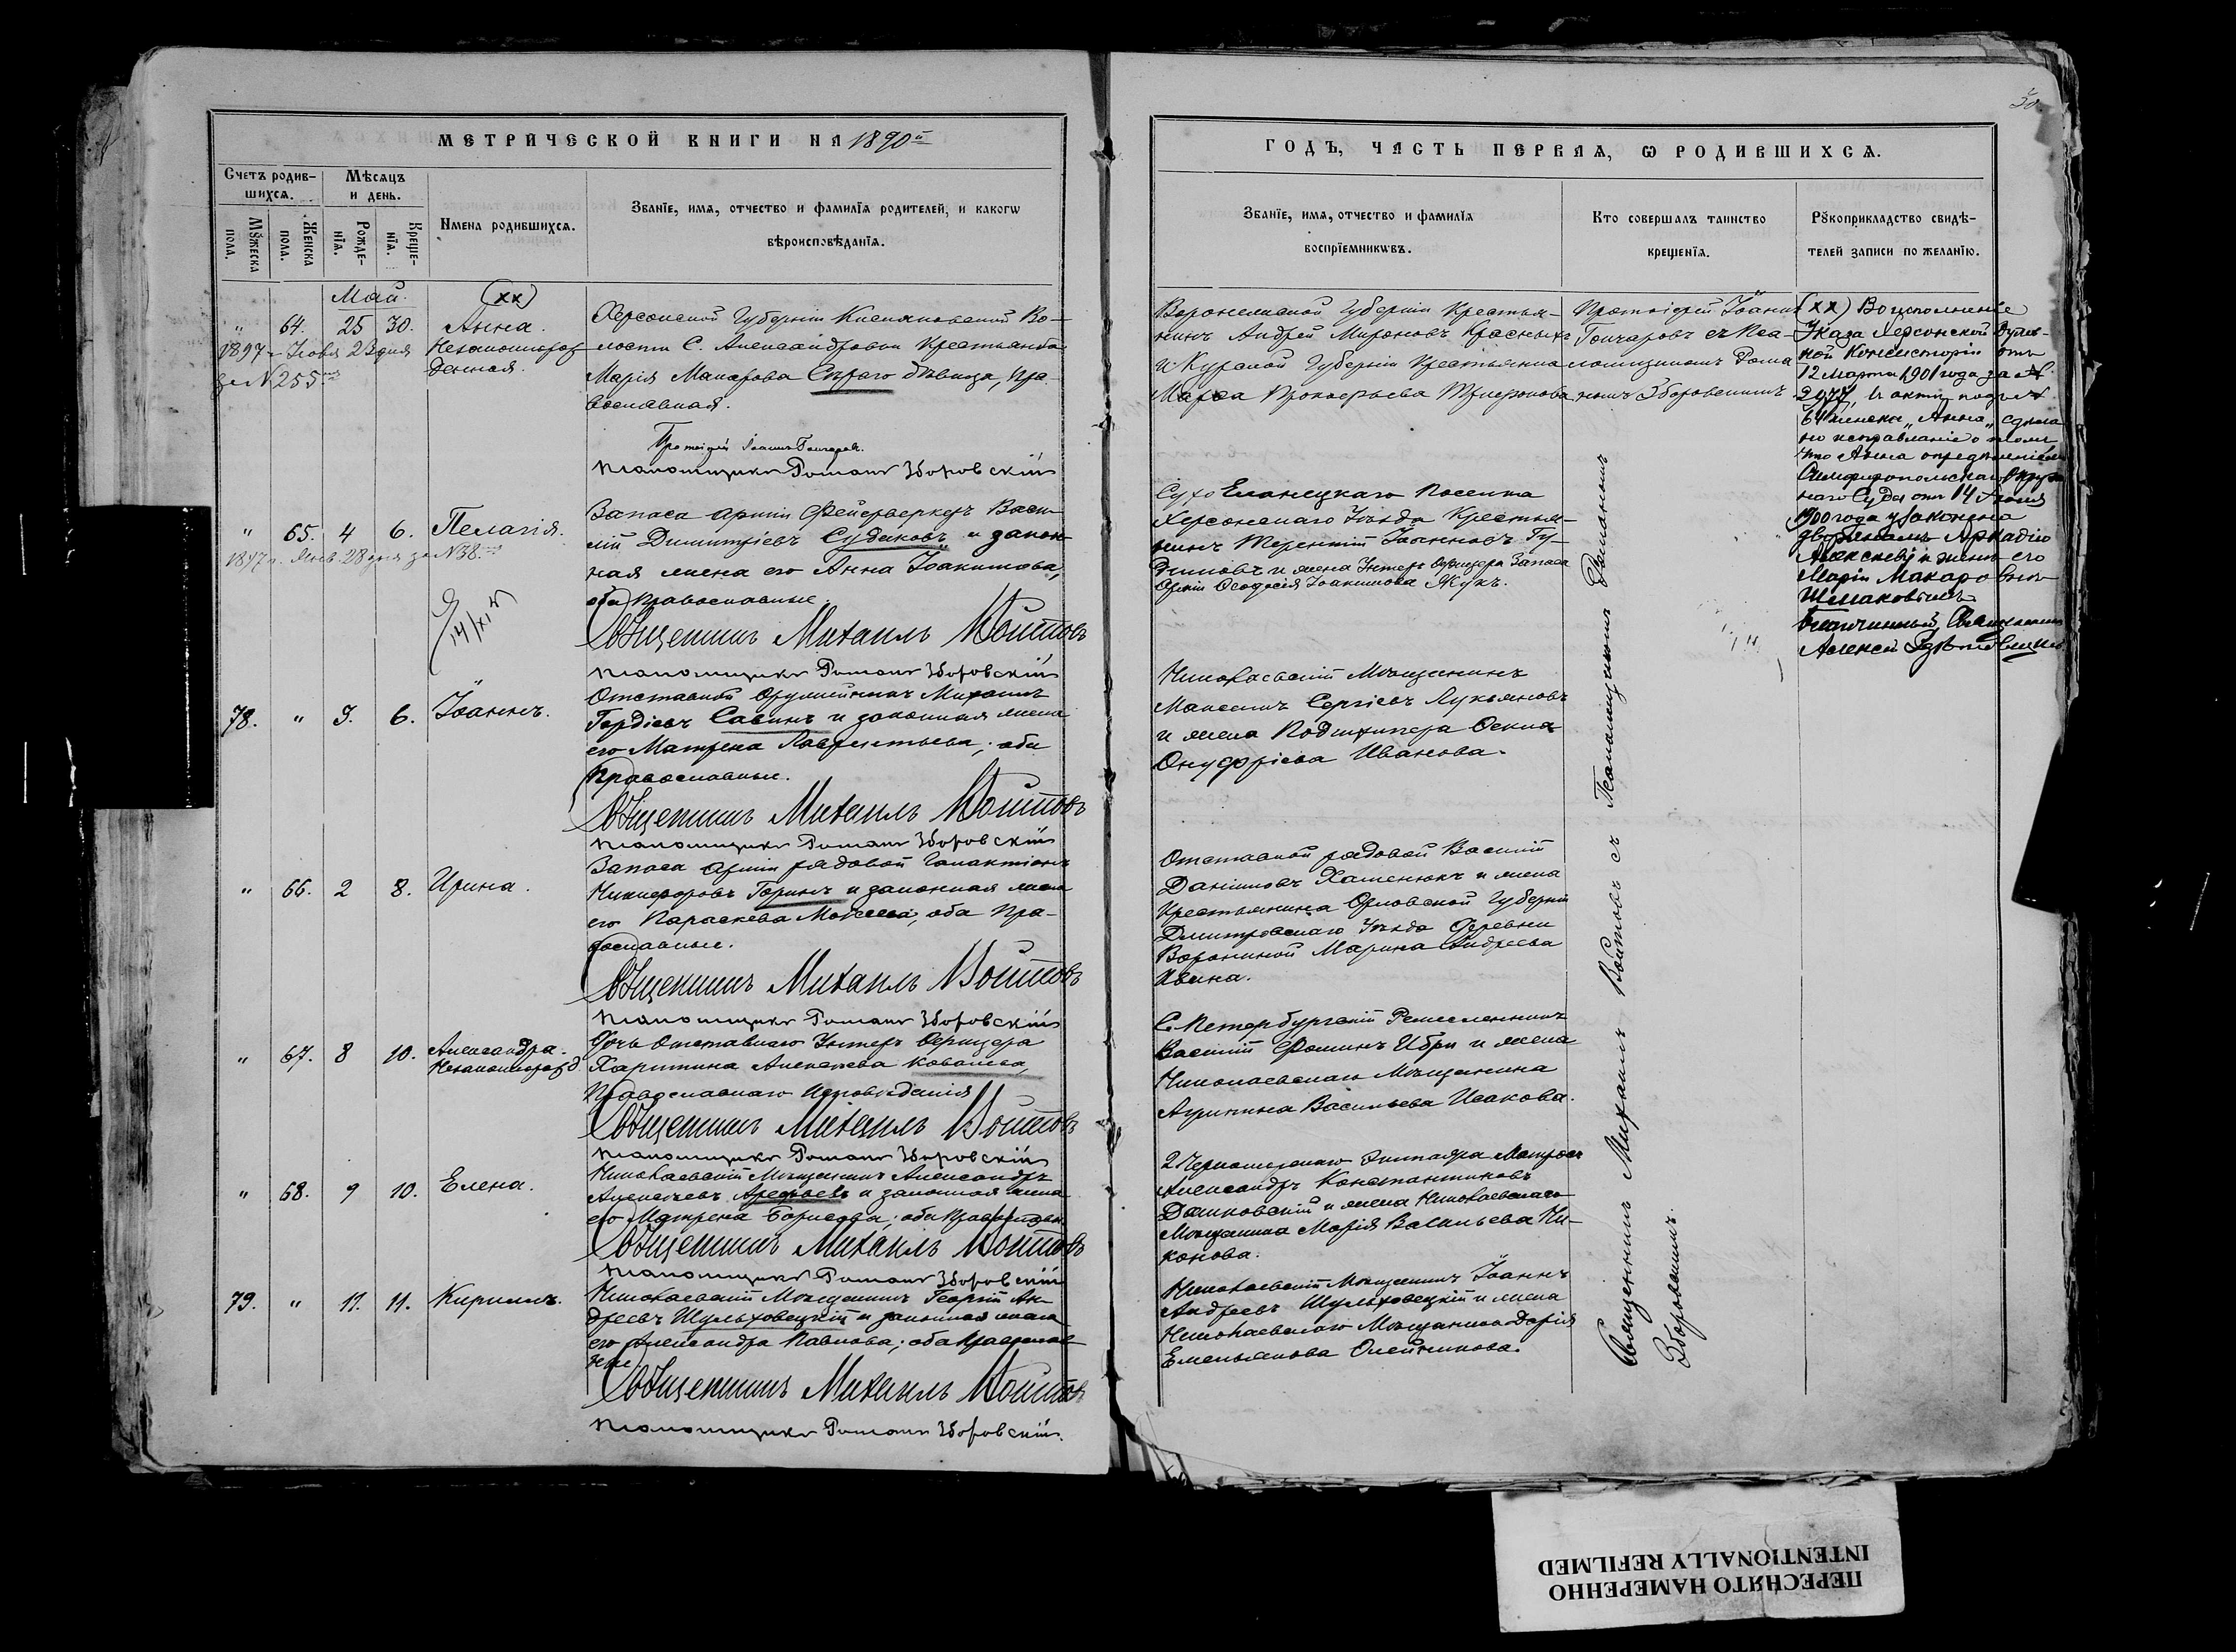 МЕТРИЧЕСКОЙ КНИГИ НА 1890й
Счетъ родив-
шихся.
Мѣсяцъ
и день.
Мужеска
пола.
Женска
пола.
Рожде-
нія.
Креще-
нія.
Имена родившихся.
Званіе, имя, отчество и фамилія родителей, и какогѡ
вѣроисповѣданія.
Май.
(хх)
" 64. 25 30. Анна.
Незаконнорож
денная.
1897 г. 23 дня
за N 255
Херсонской Губерніи Во-
лости С. Александровки Крестьянка
Марія Макарова Сѣраго дѣвица, пра-
вославная.
Протоіерей Іоаннъ Гончаровъ.
Псаломщикъ Романъ Зборовскій
" 65. 4 6. Пелагія.
1897 г. Янв. 28 дня за N 38.
Запаса Арміи Фейерверкеръ Васи-
лій Димитріевъ Судаковъ и закон-
ная жена его Анна Іоакимова,
оба Православные.
Священникъ Михаилъ Войтовъ
Псаломщикъ Романъ Зборовскій
78. " 3. 6. Іоаннъ.
Отставной Михаилъ
Гордіевъ Савинъ и законная жена
его Матрена Лаврентьева, оба
Православные.
Священникъ Михаилъ Войтовъ
Псаломщикъ Романъ Зборовскій
" 66. 2 8. Ирина.
Запаса Арміи рядовой Галактіонъ
Никифоровъ Горинъ и законная жена
его Параскева Моисеева, оба Пра-
вославные.
Священникъ Михаилъ Войтовъ
Псаломщикъ Романъ Зборовскій
" 67. 8 10. Александра.
Незаконнорожд
Дочь Отставнаго Унтеръ Офицера
Харитина Алексѣева Ковалева,
Православнаго Исповѣданія
Священникъ Михаилъ Войтовъ
Псаломщикъ Романъ Зборовскій
" 68. 9 10. Елена.
Николаевскій Мѣщанинъ Александръ
Алексѣевъ Арефьевъ и законная жена
его Матрена Борисова; оба Православн.
Священникъ Михаилъ Войтовъ
Псаломщикъ Романъ Зборовскій
79. " 11. 11. Кириллъ.
Николаевскій Мѣщанинъ Георгій Ан-
дреевъ Шульховецкій и законная жена
его Александра Павлова; оба Православ
ные
Священникъ Михаилъ Войтовъ
Псаломщикъ Романъ Зборовскій.
ГОДЪ, ЧАСТЬ ПЕРВАЯ, Ѡ РОДИВШИХСЯ.
Званіе, имя, отчество и фамилія
воспріемникѡвъ.
Кто совершалъ таинство
крещенія.
Рукоприкладство свидѣ-
телей записи по желанію.
Воронежской Губерніи Крестья-
нинъ Андрей Мироновъ Красныхъ
и Курской Губерніи Крестьянка
Марѳа Прокофьева Трифонова
Протоіерей Іоаннъ
Гончаровъ съ Пса-
ломщикомъ Рома-
номъ Зборовскимъ
(хх) Во исполненіе
Указа Херсонской Духов-
ной Консисторіи отъ
12 Марта 1901 года за N
2077, въ актѣ подъ N
64 женска "Анна" сдѣла
но исправленіе о томъ
что Анна опредѣленіемъ
Симферопольскаго Окруж
наго Суда отъ 14
1900 года узаконена
дворянамъ Аркадію
Алексѣеву и женѣ его
Маріи Макаровой
Благочинный, Священникъ
Алексій
Сухо Еланецкаго Посёлка
Херсонскаго Уѣзда Крестья-
нинъ Терентій Іоанновъ
и жена Унтеръ Офицера Запаса
Арміи Ѳеодосія Іоакимова Жукъ.
Николаевскій Мѣщанинъ
Максимъ Сергіевъ Лукьяновъ
и жена Подшкипера
Онуфріева Иванова.
Отставной рядовой Василій
Даниловъ и жена
Крестьянина Орловской Губерніи
Дмитровскаго Уѣзда Деревни
Ворониной Марина Андреева
Ивина.
С. Петербургскій Ремесленникъ
Василій Ѳоминъ и жена
Николаевскаго Мѣщанина
Акулина Васильева Исакова.
2 Черноморскаго Экипажа Матросъ
Александръ Константиновъ
Дашковскій и жена Николаевскаго
Мѣщанина Марія Васильева Ни-
конова.
Николаевскій Мѣщанинъ Іоаннъ
Андреевъ Шульховецкій и жена
Николаевскаго Мѣщанина Дарія
Емельянова Олейникова.
Священникъ Михаилъ Войтовъ съ Псаломщикомъ Романомъ
Зборовскимъ.
ПЕРЕСНЯТО НАМЕРЕННО
INTENTIONALLY REFILMED